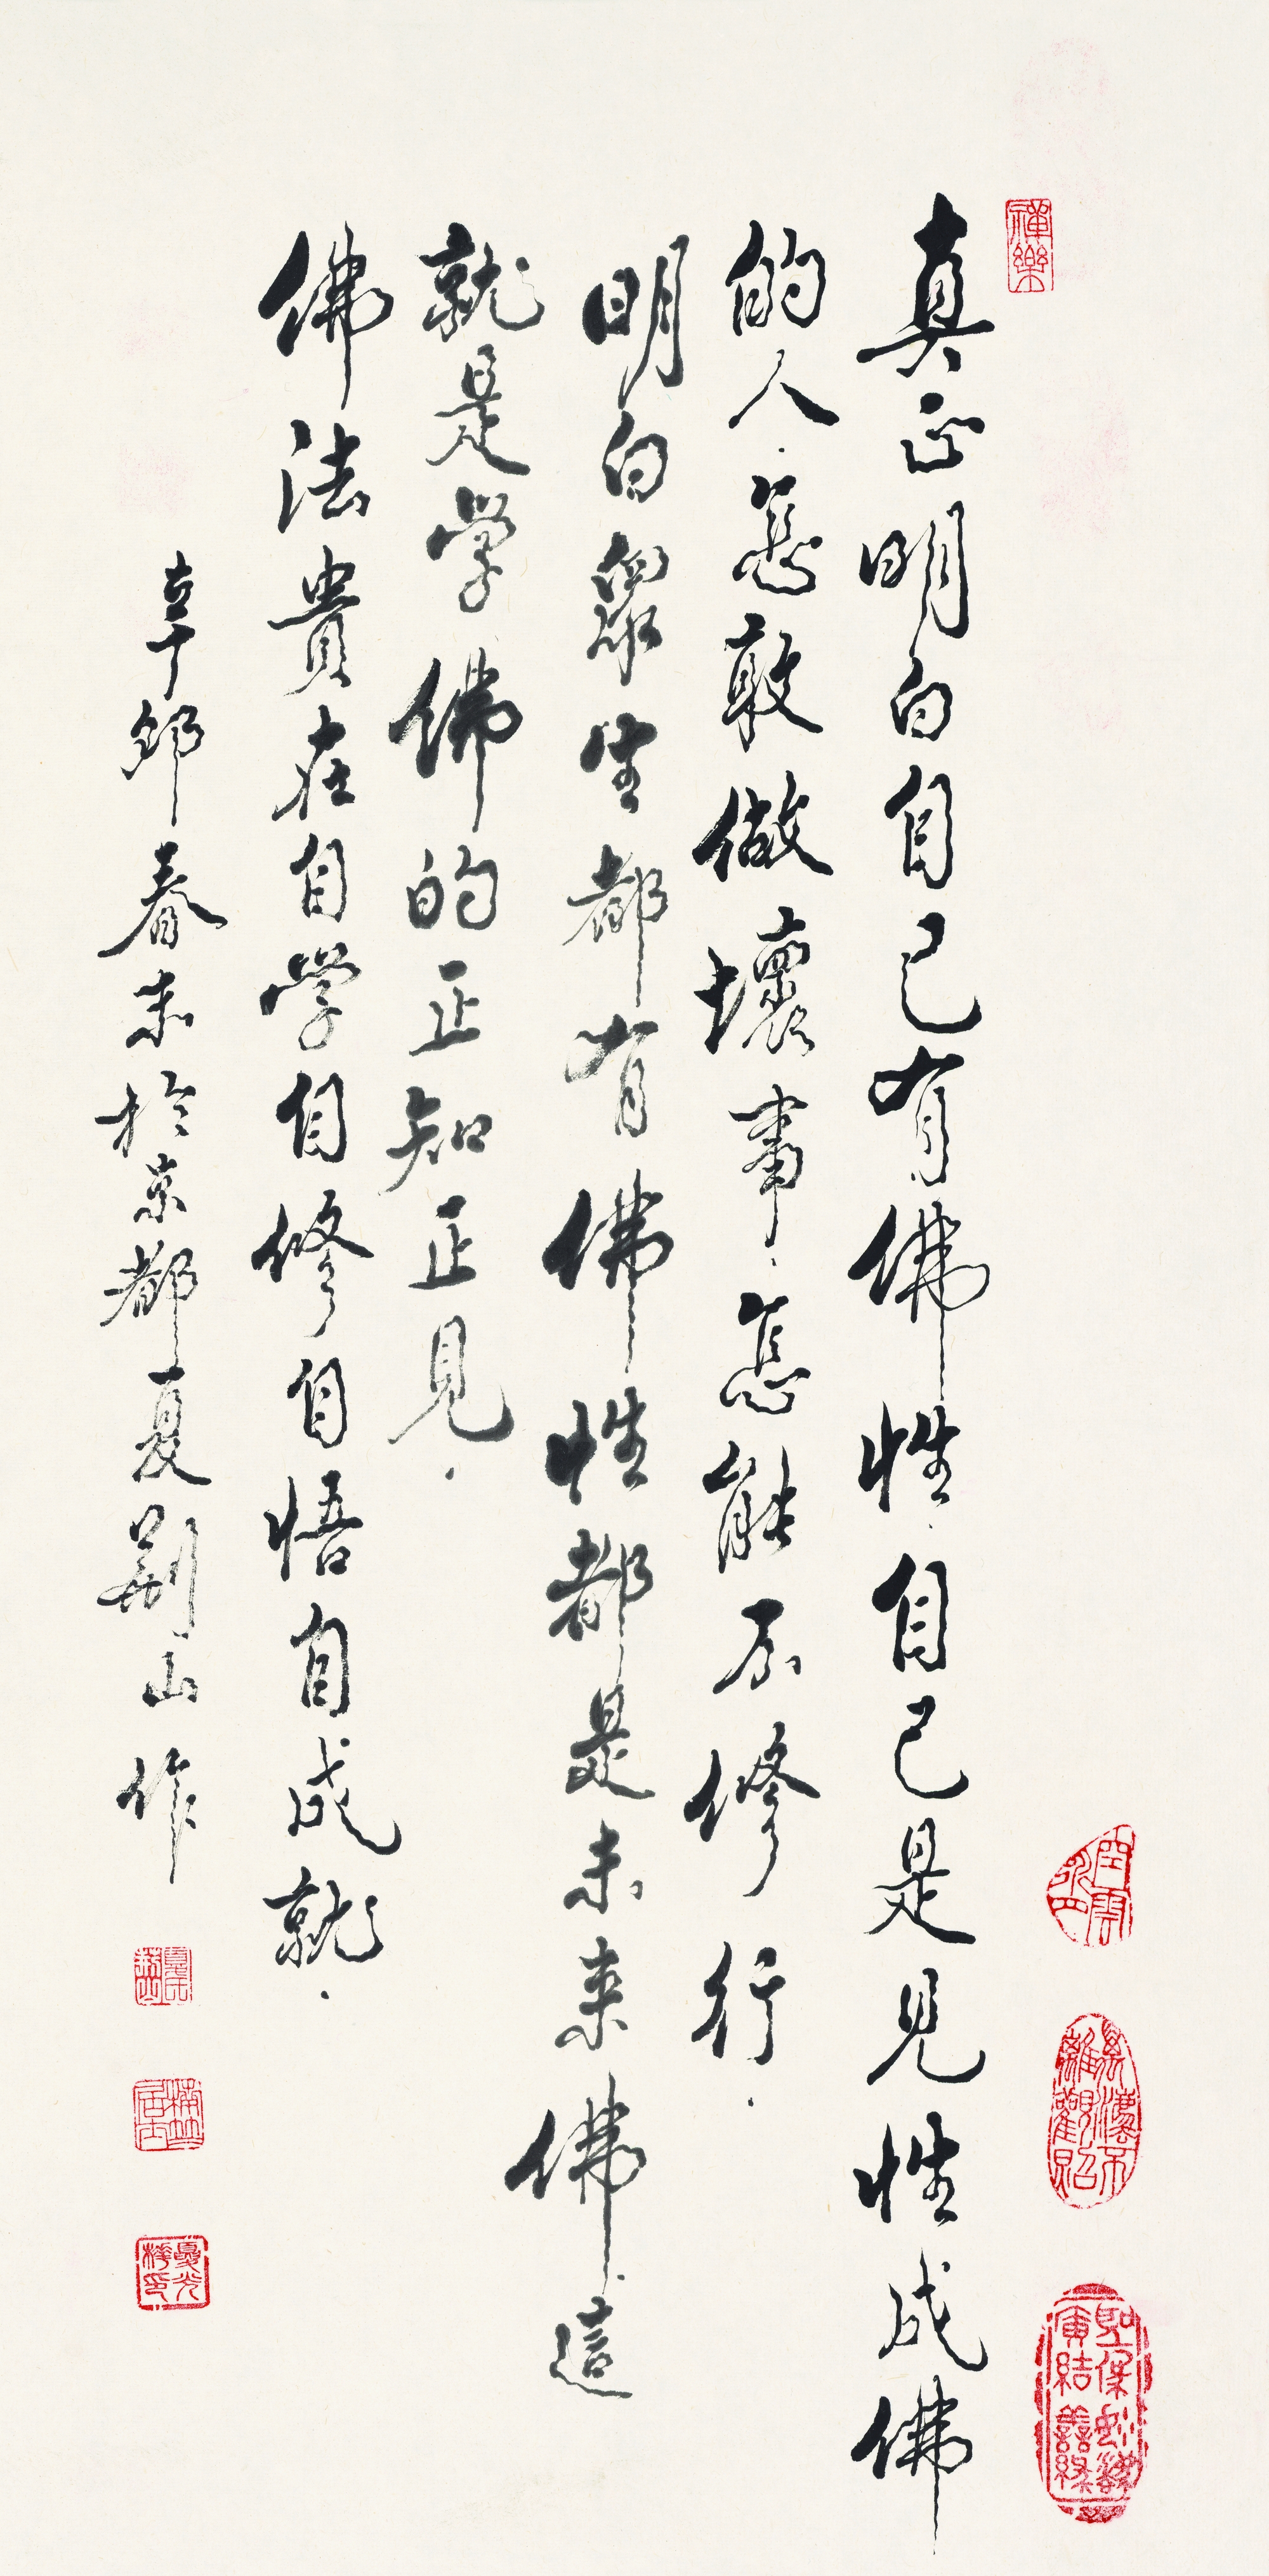 禪樂
真正明白自己有佛性.自己是見性成佛
的人.怎敢做壞事.怎能不修行.
明白眾生都有佛性都是未來佛.這
就是學佛的正知正見.
佛法貴在自學自修自悟自成就.
辛卯春末於京都夏荊山作